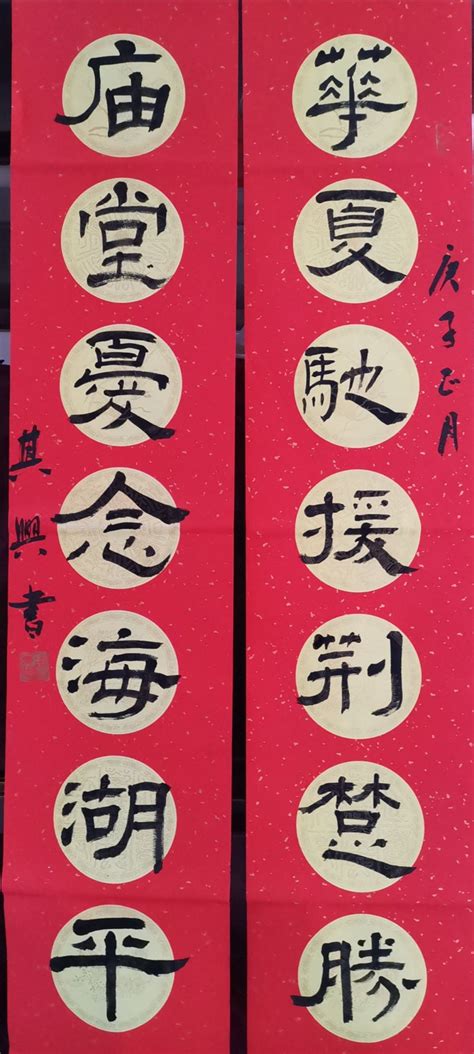 庚子正月
華夏馳援荆楚勝
庙堂憂念海湖平
其興書